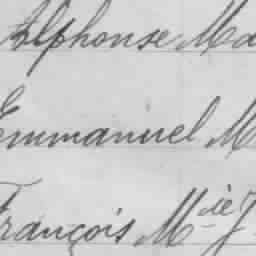 Alphonse Ma
Emmanuel M
François M.ie J